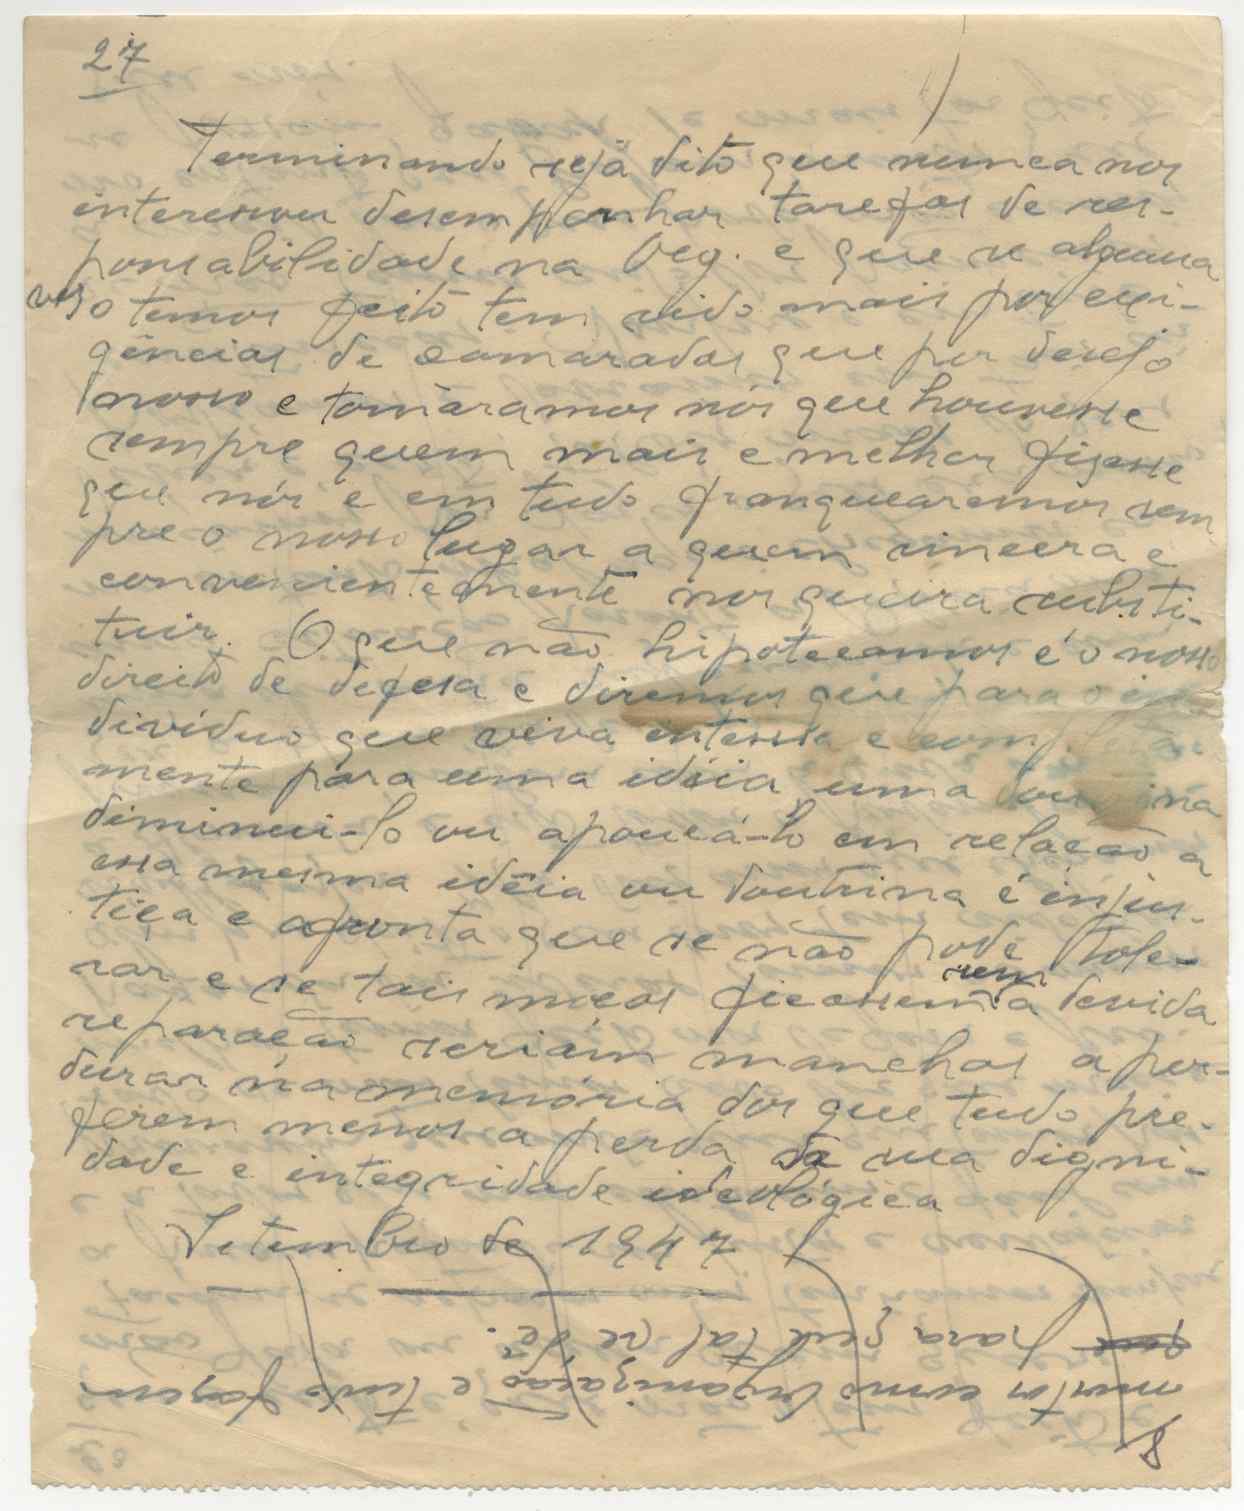 27
Terminando seja dito que nunca nos
interessou desempenhar tarefas de res-
ponsabilidade na Org. e que se alguma
vez o temos feito tem sido mais por exi-
gências de camaradas que por desejo
nosso e tomáramos nós que houvesse
sempre quem mais e melhor fizesse
que nós e em tudo franquearemos sem
pre o nosso lugar a quem sincera e
convenientemente nos queira substi-
tuir. O que não hipotecamos é o nosso
direito de defesa e diremos que para o in
divíduo que viva intensa e completa
mente para uma idéia, uma doutrina
diminui-lo ou apoucá-lo em relação a
essa mesma idéia ou doutrina é injus-
tiça e afronta que se não pode tole-
rar e se tais ficassem sem a devida
reparação seriam manchas a per-
durar na memória dos que tudo pre-
ferem menos a perda da sua digni-
dade e integridade ideológica
Setembro de 1947
8
muitos como organização e tudo fazem
para que tal se dê.